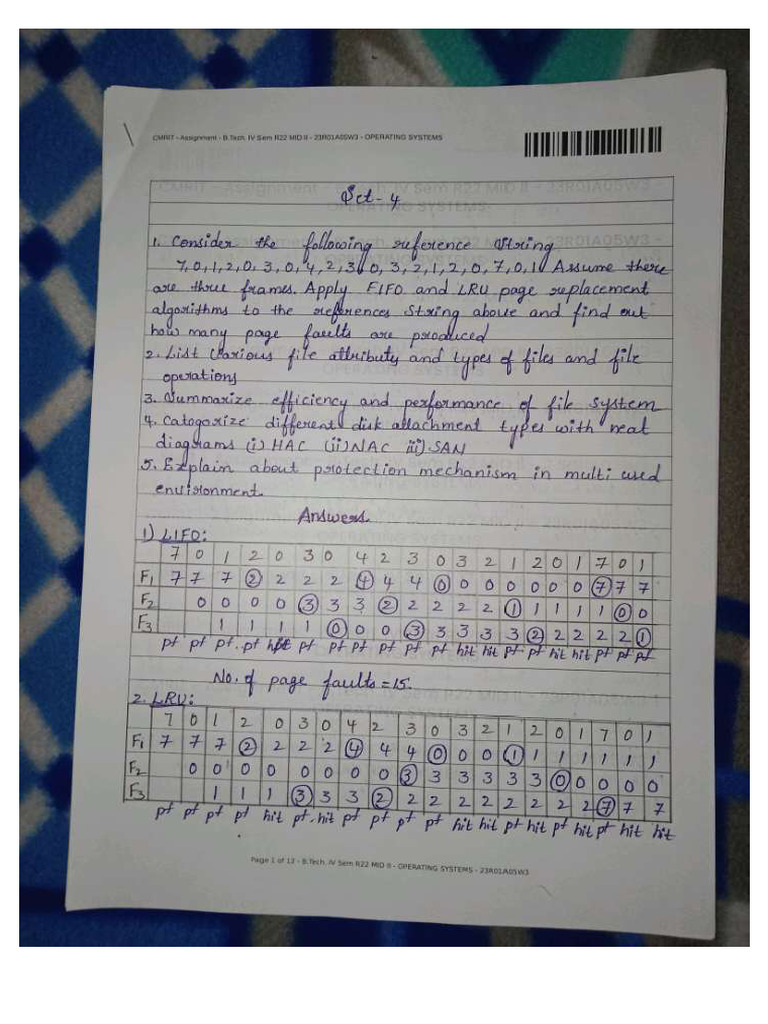 CMRIT - Assignment - B.Tech. IV Sem R22 MID II - 23R01A05W3 - OPERATING SYSTEMS
Set-4
1. Consider the following reference String
7,0,1,2,0,3,0,4,2,3,0,3,2,1,2,0,7,0,1. Assume there
are three frames. Apply FIFO and LRU page replacement
algorithms to the references String above and find out
how many page faults are produced
2. List various file attributy and types of files and file
operations
3. Summarize efficiency and performance of file system
4. Catogorize different disk attachment types with neat
diagrams (i) HAC (ii) NAC iii). SAN
5. Explain about protection mechanism in multi used
environment.
Answers.
1) LIFO:
7 0 1 2 0 3 0 4 2 3 0 3 2 1 2 0 1 7 0 1
F1 7 7 7 2 2 2 2 4 4 4 0 0 0 0 0 0 0 7 7 7
F2 0 0 0 0 3 3 3 2 2 2 2 2 1 1 1 1 1 0 0
F3 1 1 1 1 0 0 0 3 3 3 3 3 2 2 2 2 2 1
pf pf pf. pf hit pf pf pf pf pf pf hit hit pf pf hit hit pf pf pf
No. of page faults = 15.
2. LRU:
7 0 1 2 0 3 0 4 2 3 0 3 2 1 2 0 1 7 0 1
F1 7 7 7 2 2 2 2 4 4 4 0 0 0 1 1 1 1 1 1 1
F2 0 0 0 0 0 0 0 0 3 3 3 3 3 3 0 0 0 0 0
F3 1 1 1 3 3 3 2 2 2 2 2 2 2 2 2 7 7 7
pf pf pf pf hit pf. hit pf pf pf pf hit hit pf hit pf hit pf hit hit
Page 1 of 13 - B.Tech. IV Sem R22 MID II - OPERATING SYSTEMS - 23R01A05W3